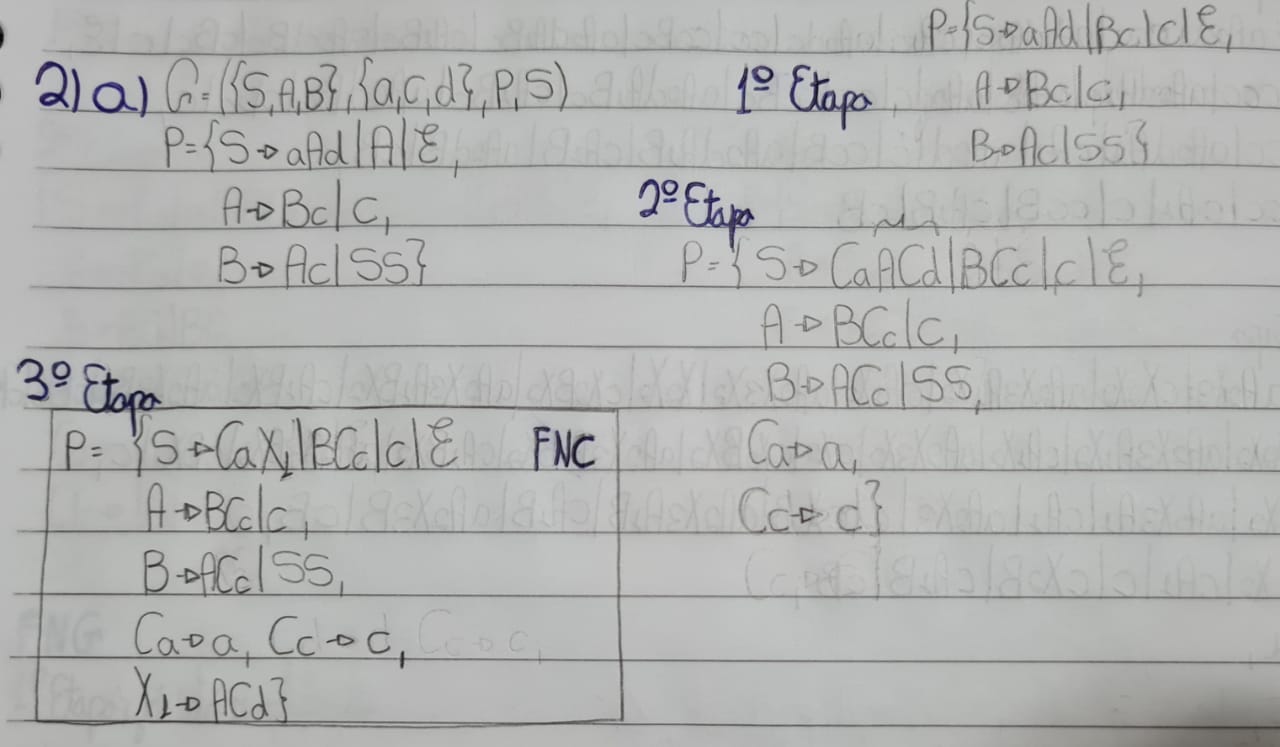 2) a) G = ({S, A, B}, {a, c, d}, P, S)
P = {S → aAd | A | Ɛ,
A → Bc | c,
B → Ac | SS}
1º Etapa
P = {S → aAd | Bc | c | Ɛ,
A → Bc | c,
B → Ac | SS}
2º Etapa
P = { S → CaACd | BCc | c | Ɛ,
A → BCc | c,
B → ACc | SS,
Ca → a,
Cc → c}
3º Etapa
P = {S → CaX₁ | BCc | c | Ɛ FNC
A → BCc | c,
B → ACc | SS,
Ca → a, Cc → c,
X₁ → ACd}